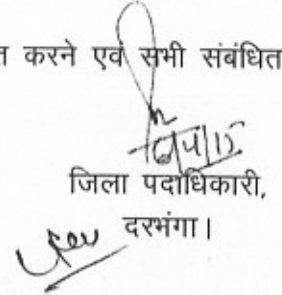 त करने एवं सभी संबंधित
जिला पदाधिकारी,
दरभंगा।